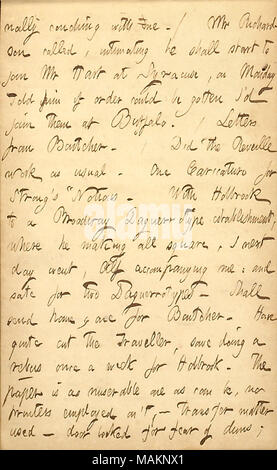 nally conching with me — / Mr Richard-
son called, intimating he shall start to
join Mr Hart at Syracuse, on Monday.
Told him if order could be gotten I'd
join them at Buffalo. / Letters
from Boutcher — Did the Reveille
work as usual — One Caricature for
Strong's "Notions — With Holbrook
to a Broadway Daguerrotype establishment,
where he making all square, I next
day went, Alf accompanying me; and
sate for two Daguerrotypes — Shall
send home, & one for Boutcher — Have
quite cut the Traveller, save doing a
rebus once a week for Holbrook — The
paper is as miserable one as can be, nor
printers employed on't, — Transfer matter
used — door locked for fear of duns;
alamy
Image ID: MAKNX1
www.alamy.com